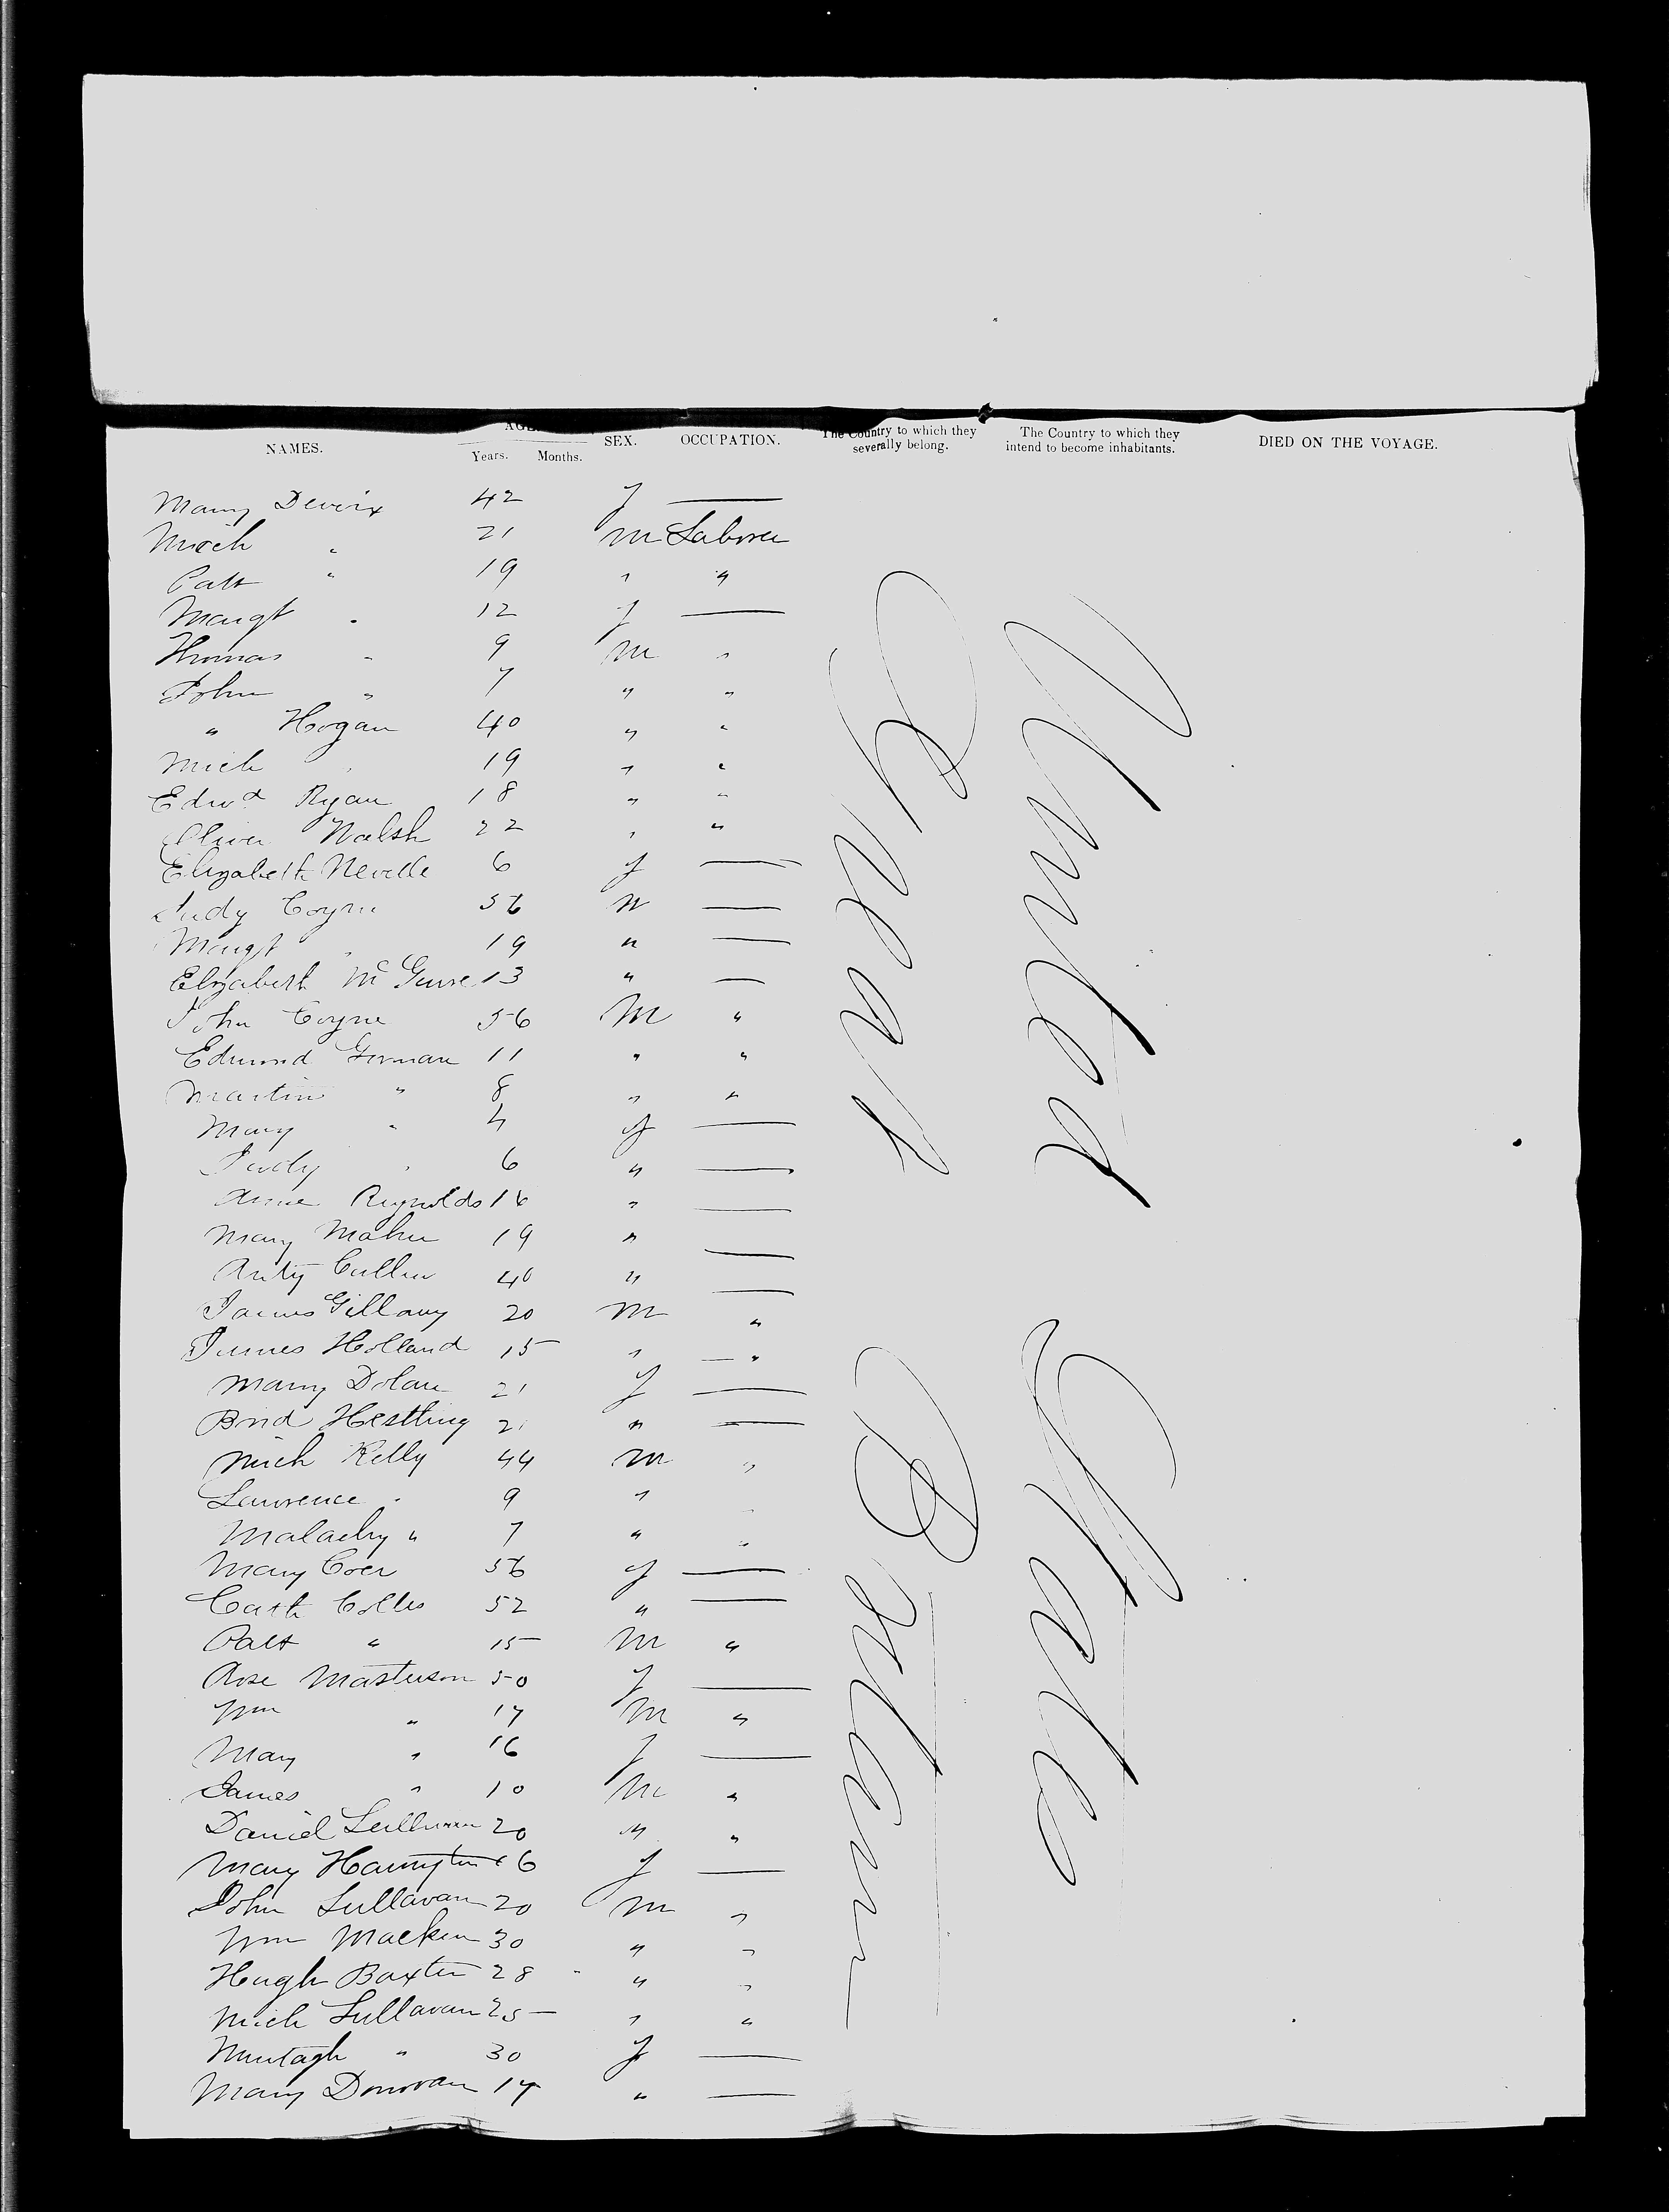 NAMES. AGE. Years. Months. SEX. OCCUPATION. The Country to which they severally belong. The Country to which they intend to become inhabitants. DIED ON THE VOYAGE.
Mary 42 f —
Mich " 21 m Laborer
Patt " 19 " "
Margt " 12 f —
Thomas " 9 m "
John " 7 " "
" Hogan 40 " "
Mich " 19 " "
Edwd Ryan 18 " "
Oliver Walsh 22 " "
Elizabeth Neville 6 f —
Judy Coyne 56 —
Margt " 19 " —
Elizabeth McGuire 13 " —
John Coyne 56 M "
Edmund Gorman 11 " "
Martin " 8 " "
Mary " 4 f —
Judy " 6 " —
Anne Reynolds 16 " —
Mary Maher 19 " —
Anty Cullen 40 " —
James Gillany 20 m "
James Holland 15 " — "
Mary Dolan 21 f —
Brid Hestling 21 " —
Mich Kelly 44 m "
Lawrence " 9 " "
Malachy " 7 " "
Mary 56 f —
Cath Colles 52 " —
Patt " 15 M "
Rose Masterson 50 f —
Wm " 17 M "
Mary " 16 f —
James " 10 M "
Daniel Sullivan 20 "
Mary Harrington 16 f —
John Sullavan 20 m "
Wm Macken 30 " "
Hugh Baxter 28 " "
Mich Sullavan 25 " "
Murtagh " 30 f —
Mary Donovan 17 " —
Great Britain
United State